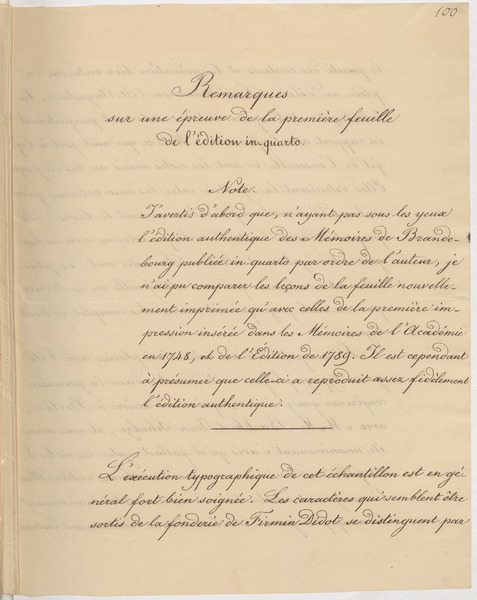 100
Remarques
sur une épreuve de la première feuille
de l'édition in-quarto.
Note.
J'avertis d'abord que, n'ayant pas sous les yeux
l'édition authentique des Mémoires de Brande-
bourg publiée in-quarto par ordre de l'auteur, je
n'ai pu comparer les leçons de la feuille nouvelle-
ment imprimée qu'avec celles de la première im-
pression insérée dans les Mémoires de l'Académie
en 1748, et de l'Édition de 1789. Il est cependant
à présumer que celle-ci a reproduit assez fidèlement
l'édition authentique.
L'exécution typographique de cet échantillon est en gé-
néral fort bien soignée. Les caractères qui semblent être
sortis de la fonderie de Firmin Didot se distinguent par